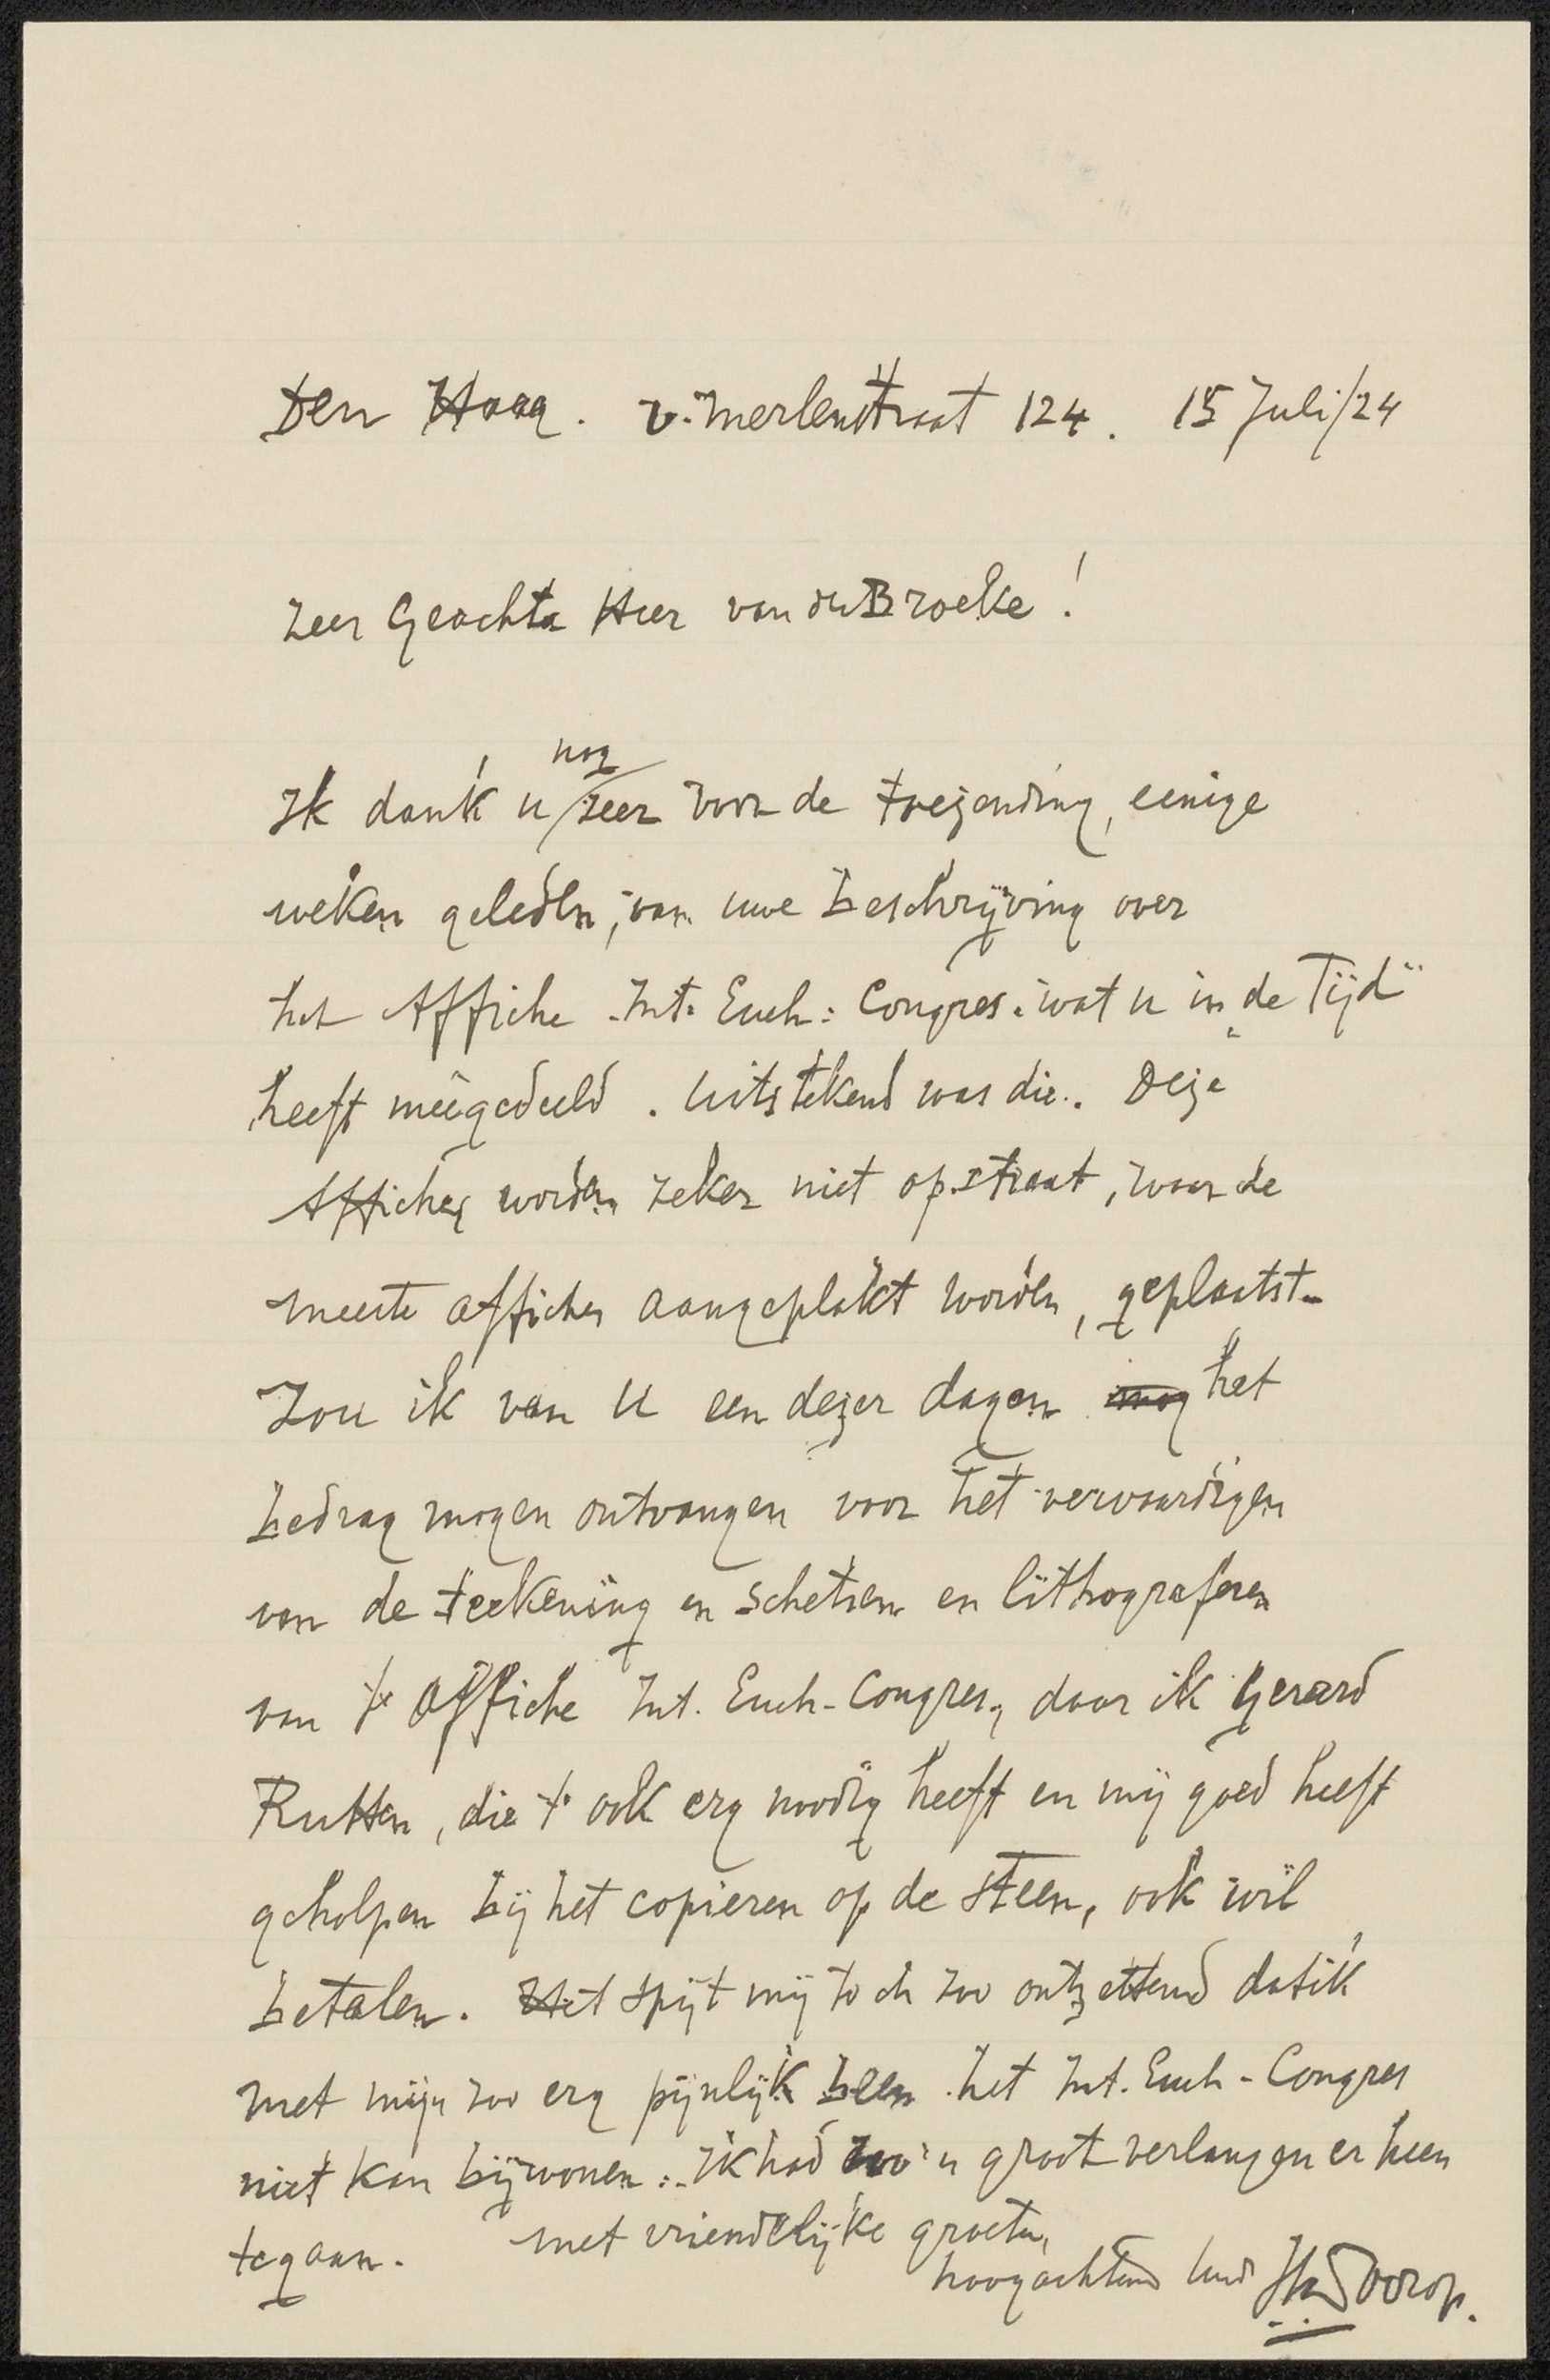 Den Haag. v. Merlenstraat 124. 15 Juli/24
Zeer Geachte Heer van den Broeke!
nog
Ik dank u zeer voor de toezending, eenige
weken geleden, van uwe beschrijving over
het Affiche Int. Euch: Congres. wat u in „de Tijd"
heeft meegedeeld. Uitstekend was die. Deze
Affiches worden zeker niet op straat, waar de
meeste affiches aangeplakt worden, geplaatst.
Zou ik van U een dezer dagen het
bedrag mogen ontvangen voor het vervaardigen
van de teekening en schetsen en lithograferen
van 't affiche Int. Euch-Congres, daar ik Gerard
Rutten, die 't ook erg noodig heeft en mij goed heeft
geholpen bij het copieren op de steen, ook wil
betalen. Het spijt mij toch zoo ontzettend dat ik
met mijn zoo erg pijnlijk been het Int. Euch-Congres
niet kan bijwonen. Ik had zoo'n groot verlangen er heen
te gaan. met vriendelijke groeten,
hoogachtend Toorop.